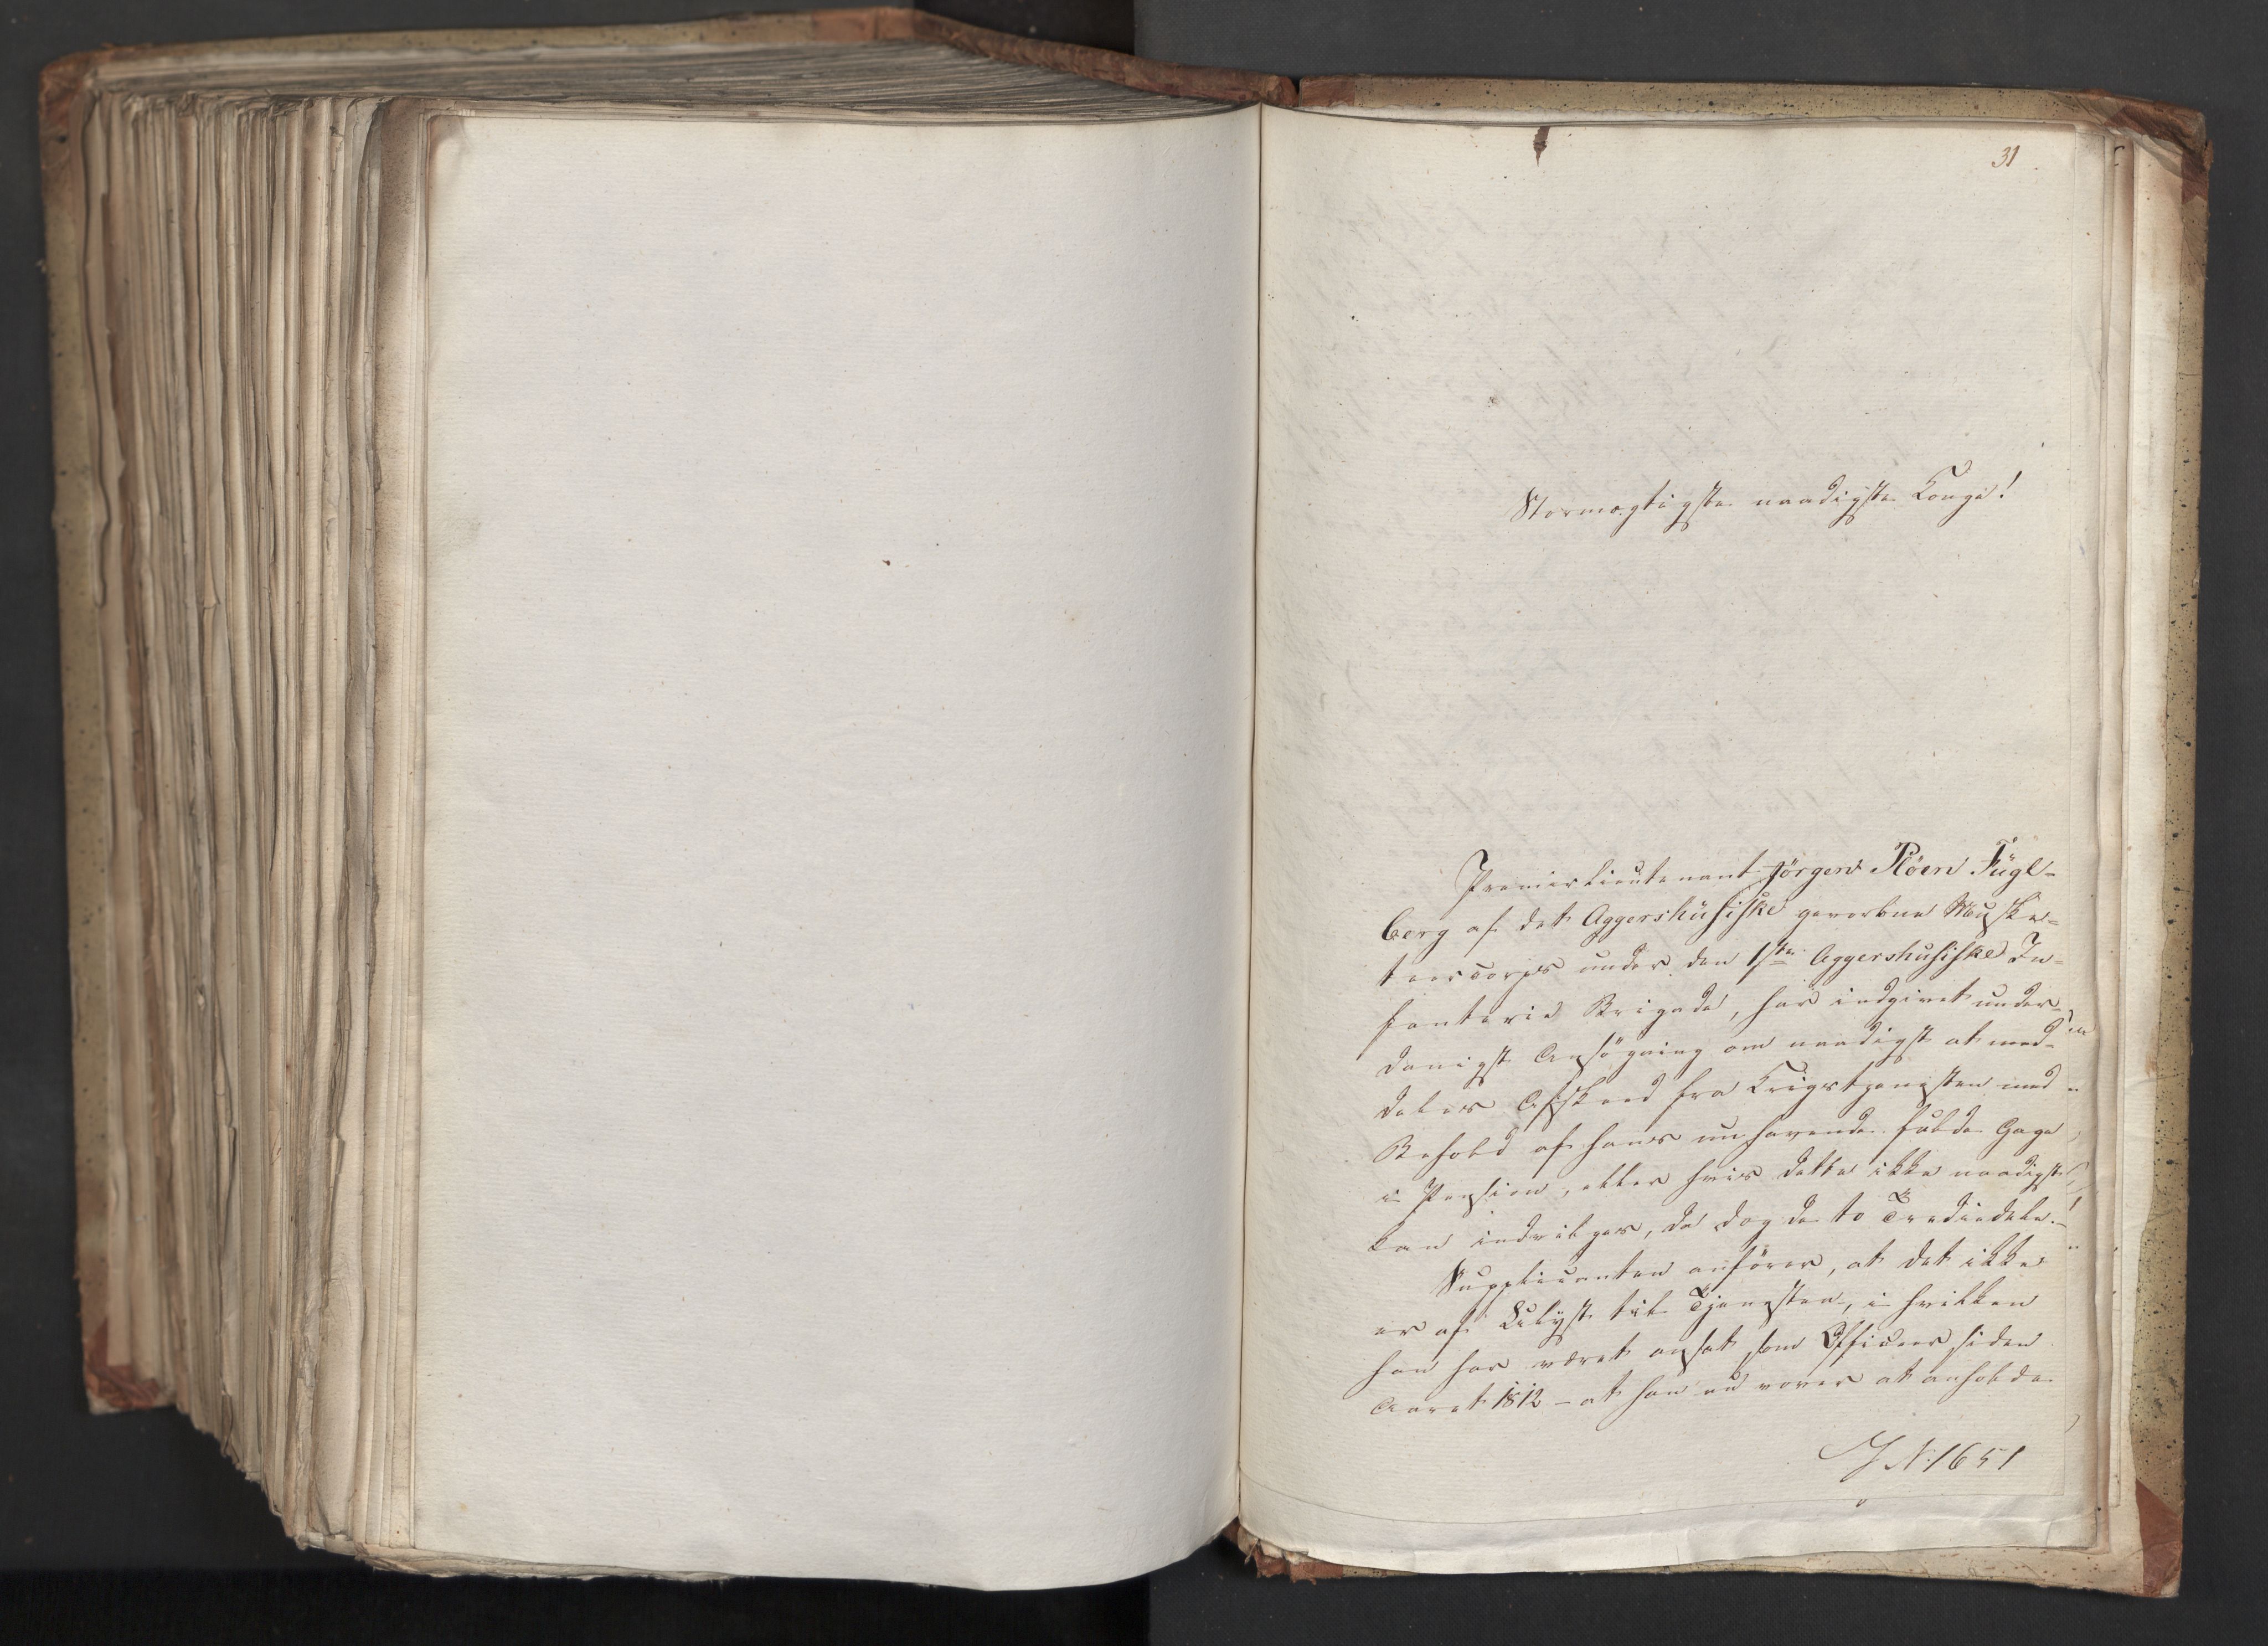 31
Stormægtigste naadigste Konge!
Premierlieutenant Jörgen Plöen Fügl-
berg af det Aggershüsiske gevorbne Muske-
teercorps under den 1ste Aggershusiske In-
fanterie Brigade, har indgivet under-
danigst Ansögning om naadigst at med-
deles Afskeed fra Krigstjenesten med
Behold af hans nu havende fulde Gage
i Pension, eller hvis dette ikke naadigst
kan indvilges, da dog de to Trediedele.
Supplicanten anförer, at det ikke
er af Ulyst til Tjenesten, i hvilken
han har været ansat som Officeer siden
Aaret 1812 - at han nu vover at anholde
J N. 1651